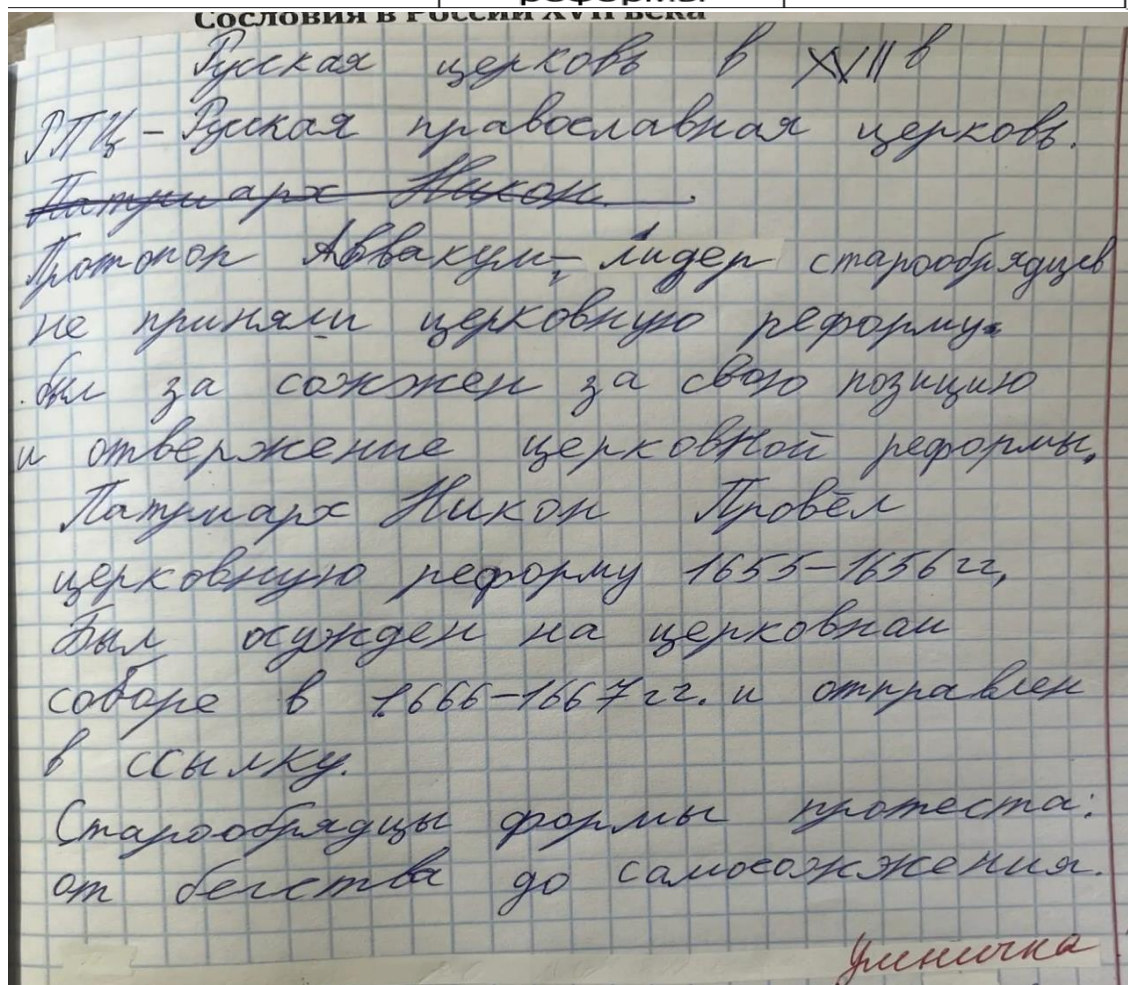 реформы
Сословия в России XVII века
Русская церковь в XVII в
РПЦ – Русская православная церковь.
Патриарх Никон.
Протопоп Аввакум – лидер старообрядцев
не приняли церковную реформу.
был за сожжен за свою позицию
и отвержение церковной реформы.
Патриарх Никон Провёл
церковную реформу 1655–1656 гг,
Был осужден на церковнам
соборе в 1666–1667 гг. и отправлен
в ссылку.
Старообрядцы формы протеста:
от бегства до самосожжения.
Умничка